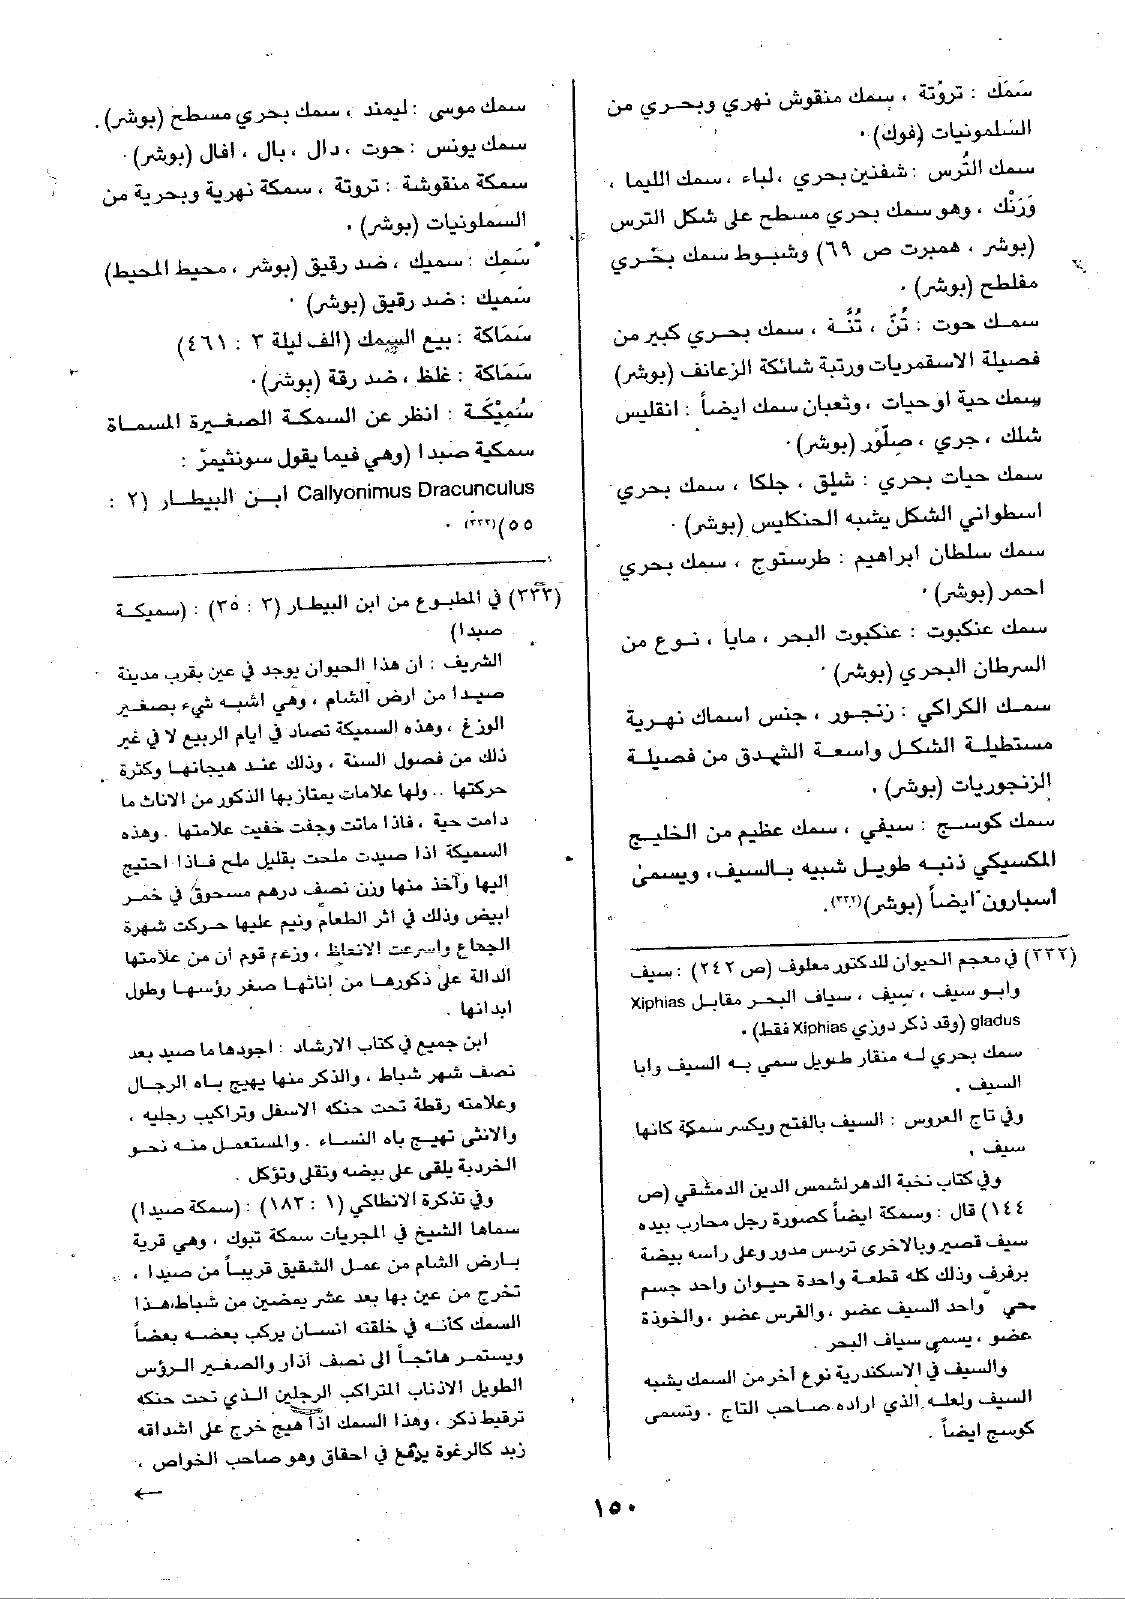 سَمَك : تروُتة ، سمك منقوش نهري وبحري من
السّلمونيات (فوك) ·
سمك التُرس : شفنين بحري ، لباء ، سمك الليما ،
وَرَنْك ، وهو سمك بحري مسطح على شكل الترس
(بوشر ، همبرت ص ٦٩) وشبوط سمك بحْري
مفلطح (بوشر) ·
سمك حوت : تُنّ ، تُنَّة ، سمك بحري كبير من
فصيلة الاسقمريات ورتبة شائكة الزعانف (بوشر)
سمك حية او حيات ، وثعبان سمك ايضاً : انقليس
شلك ، جري ، صِلَّوْر (بوشر)·
سمك حيات بحري : شلق ، جلكا ، سمك بحري
اسطواني الشكل يشبه الحنكليس (بوشر) ·
سمك سلطان ابراهيم : طرستوج ، سمك بحري
احمر (بوشر) ·
سمك عنكبوت : عنكبوت البحر ، مايا ، نوع من
السرطان البحري (بوشر) ·
سمك الكراكي : زنجور ، جنس اسماك نهرية
مستطيلة الشكل واسعة الشدق من فصيلة
الزنجوريات (بوشر) ·
سمك كوسج : سيفي ، سمك عظيم من الخليج
المكسيكي ذنبه طويل شبيه بالسيف، ويسمى
أسبارون ايضاً (بوشر)(٣٣٢).
(٣٣٢) في معجم الحيوان للدكتور معلوف (ص ٢٤٢) : سيف
وابو سيف ، سيف ، سياف البحر مقابل Xiphias
gladus (وقد ذكر دوزي Xiphias فقط) ·
سمك بحري له منقار طويل سمي به السيف وابا
السيف .
وفي تاج العروس : السيف بالفتح ويكسر سمكة كانها
سيف .
وفي كتاب نخبة الدهر لشمس الدين الدمشقي (ص
١٤٤) قال : وسمكة ايضاً كصورة رجل محارب بيده
سيف قصير وبالاخرى ترس مدور وعلى راسه بيضة
برفرف وذلك كله قطعة واحدة حيوان واحد جسم
حي واحد السيف عضو ، والقرس عضو ، والخوذة
عضو ، يسمي سياف البحر .
والسيف في الاسكندرية نوع آخر من السمك يشبه
السيف ولعله الذي اراده صاحب التاج . وتسمى
كوسج ايضاً .
سمك موسى : ليمند ، سمك بحري مسطح (بوشر).
سمك يونس : حوت ، دال ، بال ، افال (بوشر) ·
سمكة منقوشة : تروتة ، سمكة نهرية وبحرية من
السّملونيات (بوشر) ·
سَمِك : سميك ، ضد رقيق (بوشر ، محيط المحيط)
سَميك : ضد رقيق (بوشر) ·
سَمَاكة : بيع السمك (الف ليلة ٣ : ٤٦١)
سَمَاكة : غلظ ، ضد رقة (بوشر)·
سُمَيْكَة : انظر عن السمكة الصغيرة المسماة
سمكية صيدا (وهي فيما يقول سونثيمرْ :
Callyonimus Dracunculus ابن البيطار (٢ :
٥٥)(٣٣٣) ·
(٣٣٣) في المطبوع من ابن البيطار (٣ : ٣٥) : (سميكة
صيدا)
الشريف : ان هذا الحيوان يوجد في عين بقرب مدينة
صيدا من ارض الشام ، وهي اشبه شيء بصغير
الوزغ ، وهذه السميكة تصاد في ايام الربيع لا في غير
ذلك من فصول السنة ، وذلك عند هيجانها وكثرة
حركتها .. ولها علامات يمتاز بها الذكور من الاناث ما
دامت حية ، فاذا ماتت وجفت خفيت علامتها . وهذه
السميكة اذا صيدت ملحت بقليل ملح فاذا احتيج
اليها وآخذ منها وزن نصف درهم مسحوق في خمر
ابيض وذلك في اثر الطعام ونيم عليها حركت شهرة
الجماع واسرعت الانعاظ ، وزعم قوم أن من علامتها
الدالة على ذكورها من إناثها صغر رؤسها وطول
ابدانها .
ابن جميع في كتاب الارشاد : اجودها ما صيد بعد
نصف شهر شباط ، والذكر منها يهيج باه الرجال
وعلامته رقطة تحت حنكه الاسفل وتراكيب رجليه ،
والانثى تهيج باه النساء . والمستعمل منه نحو
الخردبة يلقى على بيضه وتقلى وتؤكل .
وفي تذكرة الانطاكي (١ : ١٨٣) : (سمكة صيدا)
سماها الشيخ في المجربات سمكة تبوك ، وهي قرية
بارض الشام من عمل الشقيق قريباً من صيدا ،
تخرج من عين بها بعد عشر يمضين من شباط، هذا
السمك كأنه في خلقته انسان يركب بعضه بعضاً
ويستمر هائجاً الى نصف آذار والصغير الرؤس
الطويل الاذناب المتراكب الرجلين الذي تحت حنكه
ترقيط ذكر ، وهذا السمك اذا هيج خرج على اشداقه
زبد كالرغوة يرفع في احقاق وهو صاحب الخواص ،
←
١٥٠